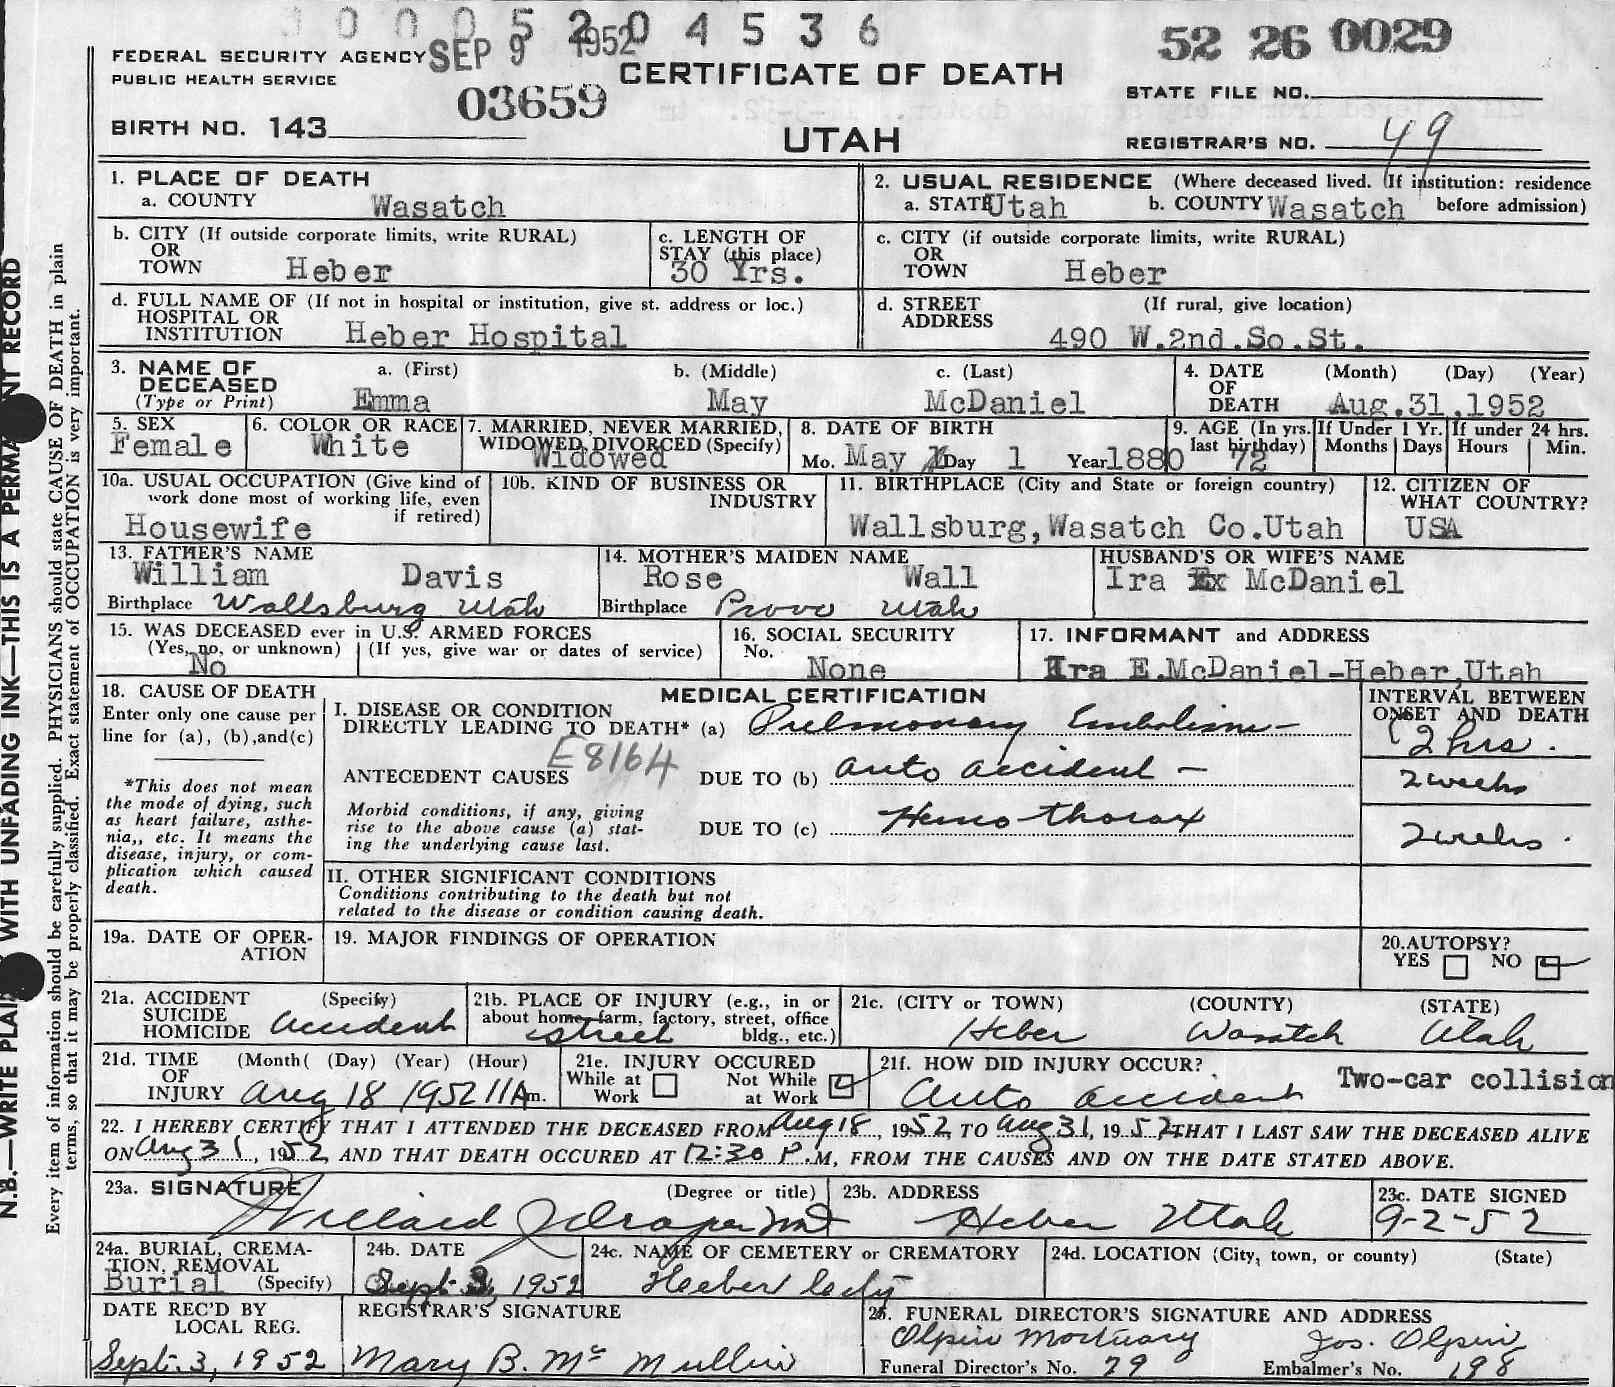 000 05204536
FEDERAL SECURITY AGENCY SEP 9 1952 52 26 0029
PUBLIC HEALTH SERVICE CERTIFICATE OF DEATH STATE FILE NO.
03659
BIRTH NO. 143 UTAH REGISTRAR'S NO. 49
1. PLACE OF DEATH
a. COUNTY Wasatch
2. USUAL RESIDENCE (Where deceased lived. If institution: residence before admission)
a. STATE Utah b. COUNTY Wasatch
b. CITY (If outside corporate limits, write RURAL)
OR
TOWN Heber
c. LENGTH OF
STAY (this place)
30 Yrs.
c. CITY (if outside corporate limits, write RURAL)
OR
TOWN Heber
d. FULL NAME OF (If not in hospital or institution, give st. address or loc.)
HOSPITAL OR
INSTITUTION Heber Hospital
d. STREET (If rural, give location)
ADDRESS
490 W.2nd.So.St.
3. NAME OF a. (First) b. (Middle) c. (Last)
DECEASED
(Type or Print) Emma May McDaniel
4. DATE (Month) (Day) (Year)
OF
DEATH Aug.31,1952
5. SEX
Female
6. COLOR OR RACE
White
7. MARRIED, NEVER MARRIED,
WIDOWED, DIVORCED (Specify)
Widowed
8. DATE OF BIRTH
Mo. May Day 1 Year 1880
9. AGE (In yrs.
last birthday)
72
If Under 1 Yr.
Months Days
If under 24 hrs.
Hours Min.
10a. USUAL OCCUPATION (Give kind of
work done most of working life, even
if retired)
Housewife
10b. KIND OF BUSINESS OR
INDUSTRY
11. BIRTHPLACE (City and State or foreign country)
Wallsburg,Wasatch Co.Utah
12. CITIZEN OF
WHAT COUNTRY?
USA
13. FATHER'S NAME
William Davis
Birthplace Wallsburg Utah
14. MOTHER'S MAIDEN NAME
Rose Wall
Birthplace Provo Utah
HUSBAND'S OR WIFE'S NAME
Ira Ex McDaniel
15. WAS DECEASED ever in U.S. ARMED FORCES
(Yes, no, or unknown) (If yes, give war or dates of service)
No
16. SOCIAL SECURITY
No.
None
17. INFORMANT and ADDRESS
Ira E.McDaniel-Heber,Utah
18. CAUSE OF DEATH
Enter only one cause per
line for (a), (b),and(c)
*This does not mean
the mode of dying, such
as heart failure, asthe-
nia,, etc. It means the
disease, injury, or com-
plication which caused
death.
MEDICAL CERTIFICATION
I. DISEASE OR CONDITION
DIRECTLY LEADING TO DEATH* (a) Pulmonary Embolism -
E8164
ANTECEDENT CAUSES DUE TO (b) Auto accident -
Morbid conditions, if any, giving
rise to the above cause (a) stat-
ing the underlying cause last.
DUE TO (c) Hemo thorax
II. OTHER SIGNIFICANT CONDITIONS
Conditions contributing to the death but not
related to the disease or condition causing death.
INTERVAL BETWEEN
ONSET AND DEATH
12 hrs.
2 weeks
2 weeks.
19a. DATE OF OPER-
ATION
19. MAJOR FINDINGS OF OPERATION
20.AUTOPSY?
YES NO
21a. ACCIDENT (Specify)
SUICIDE
HOMICIDE Accident
21b. PLACE OF INJURY (e.g., in or
about home, farm, factory, street, office
bldg., etc.)
street
21c. (CITY or TOWN) (COUNTY) (STATE)
Heber Wasatch Utah
21d. TIME (Month( (Day) (Year) (Hour)
OF
INJURY Aug 18 1952 11 A m.
21e. INJURY OCCURED
While at Work Not While at Work
21f. HOW DID INJURY OCCUR?
Auto accident Two-car collision
22. I HEREBY CERTIFY THAT I ATTENDED THE DECEASED FROM Aug 18, 1952 TO Aug 31, 1952 THAT I LAST SAW THE DECEASED ALIVE
ON Aug 31, 1952 AND THAT DEATH OCCURED AT 12:30 P.M, FROM THE CAUSES AND ON THE DATE STATED ABOVE.
23a. SIGNATURE (Degree or title)
Willard Draper MD
23b. ADDRESS
Heber Utah
23c. DATE SIGNED
9-2-52
24a. BURIAL, CREMA-
TION, REMOVAL
Burial (Specify)
24b. DATE
Sept. 3, 1952
24c. NAME OF CEMETERY or CREMATORY
Heber City
24d. LOCATION (City, town, or county) (State)
DATE REC'D BY
LOCAL REG.
Sept. 3, 1952
REGISTRAR'S SIGNATURE
Mary B. Mc Mullin
25. FUNERAL DIRECTOR'S SIGNATURE AND ADDRESS
Olpin Mortuary Jos. Olpin
Funeral Director's No. 79 Embalmer's No. 198
N.B.—WRITE PLAI WITH UNFADING INK—THIS IS A PERMA NT RECORD
Every item of information should be carefully supplied. PHYSICIANS should state CAUSE OF DEATH in plain
terms, so that it may be properly classified. Exact statement of OCCUPATION is very important.